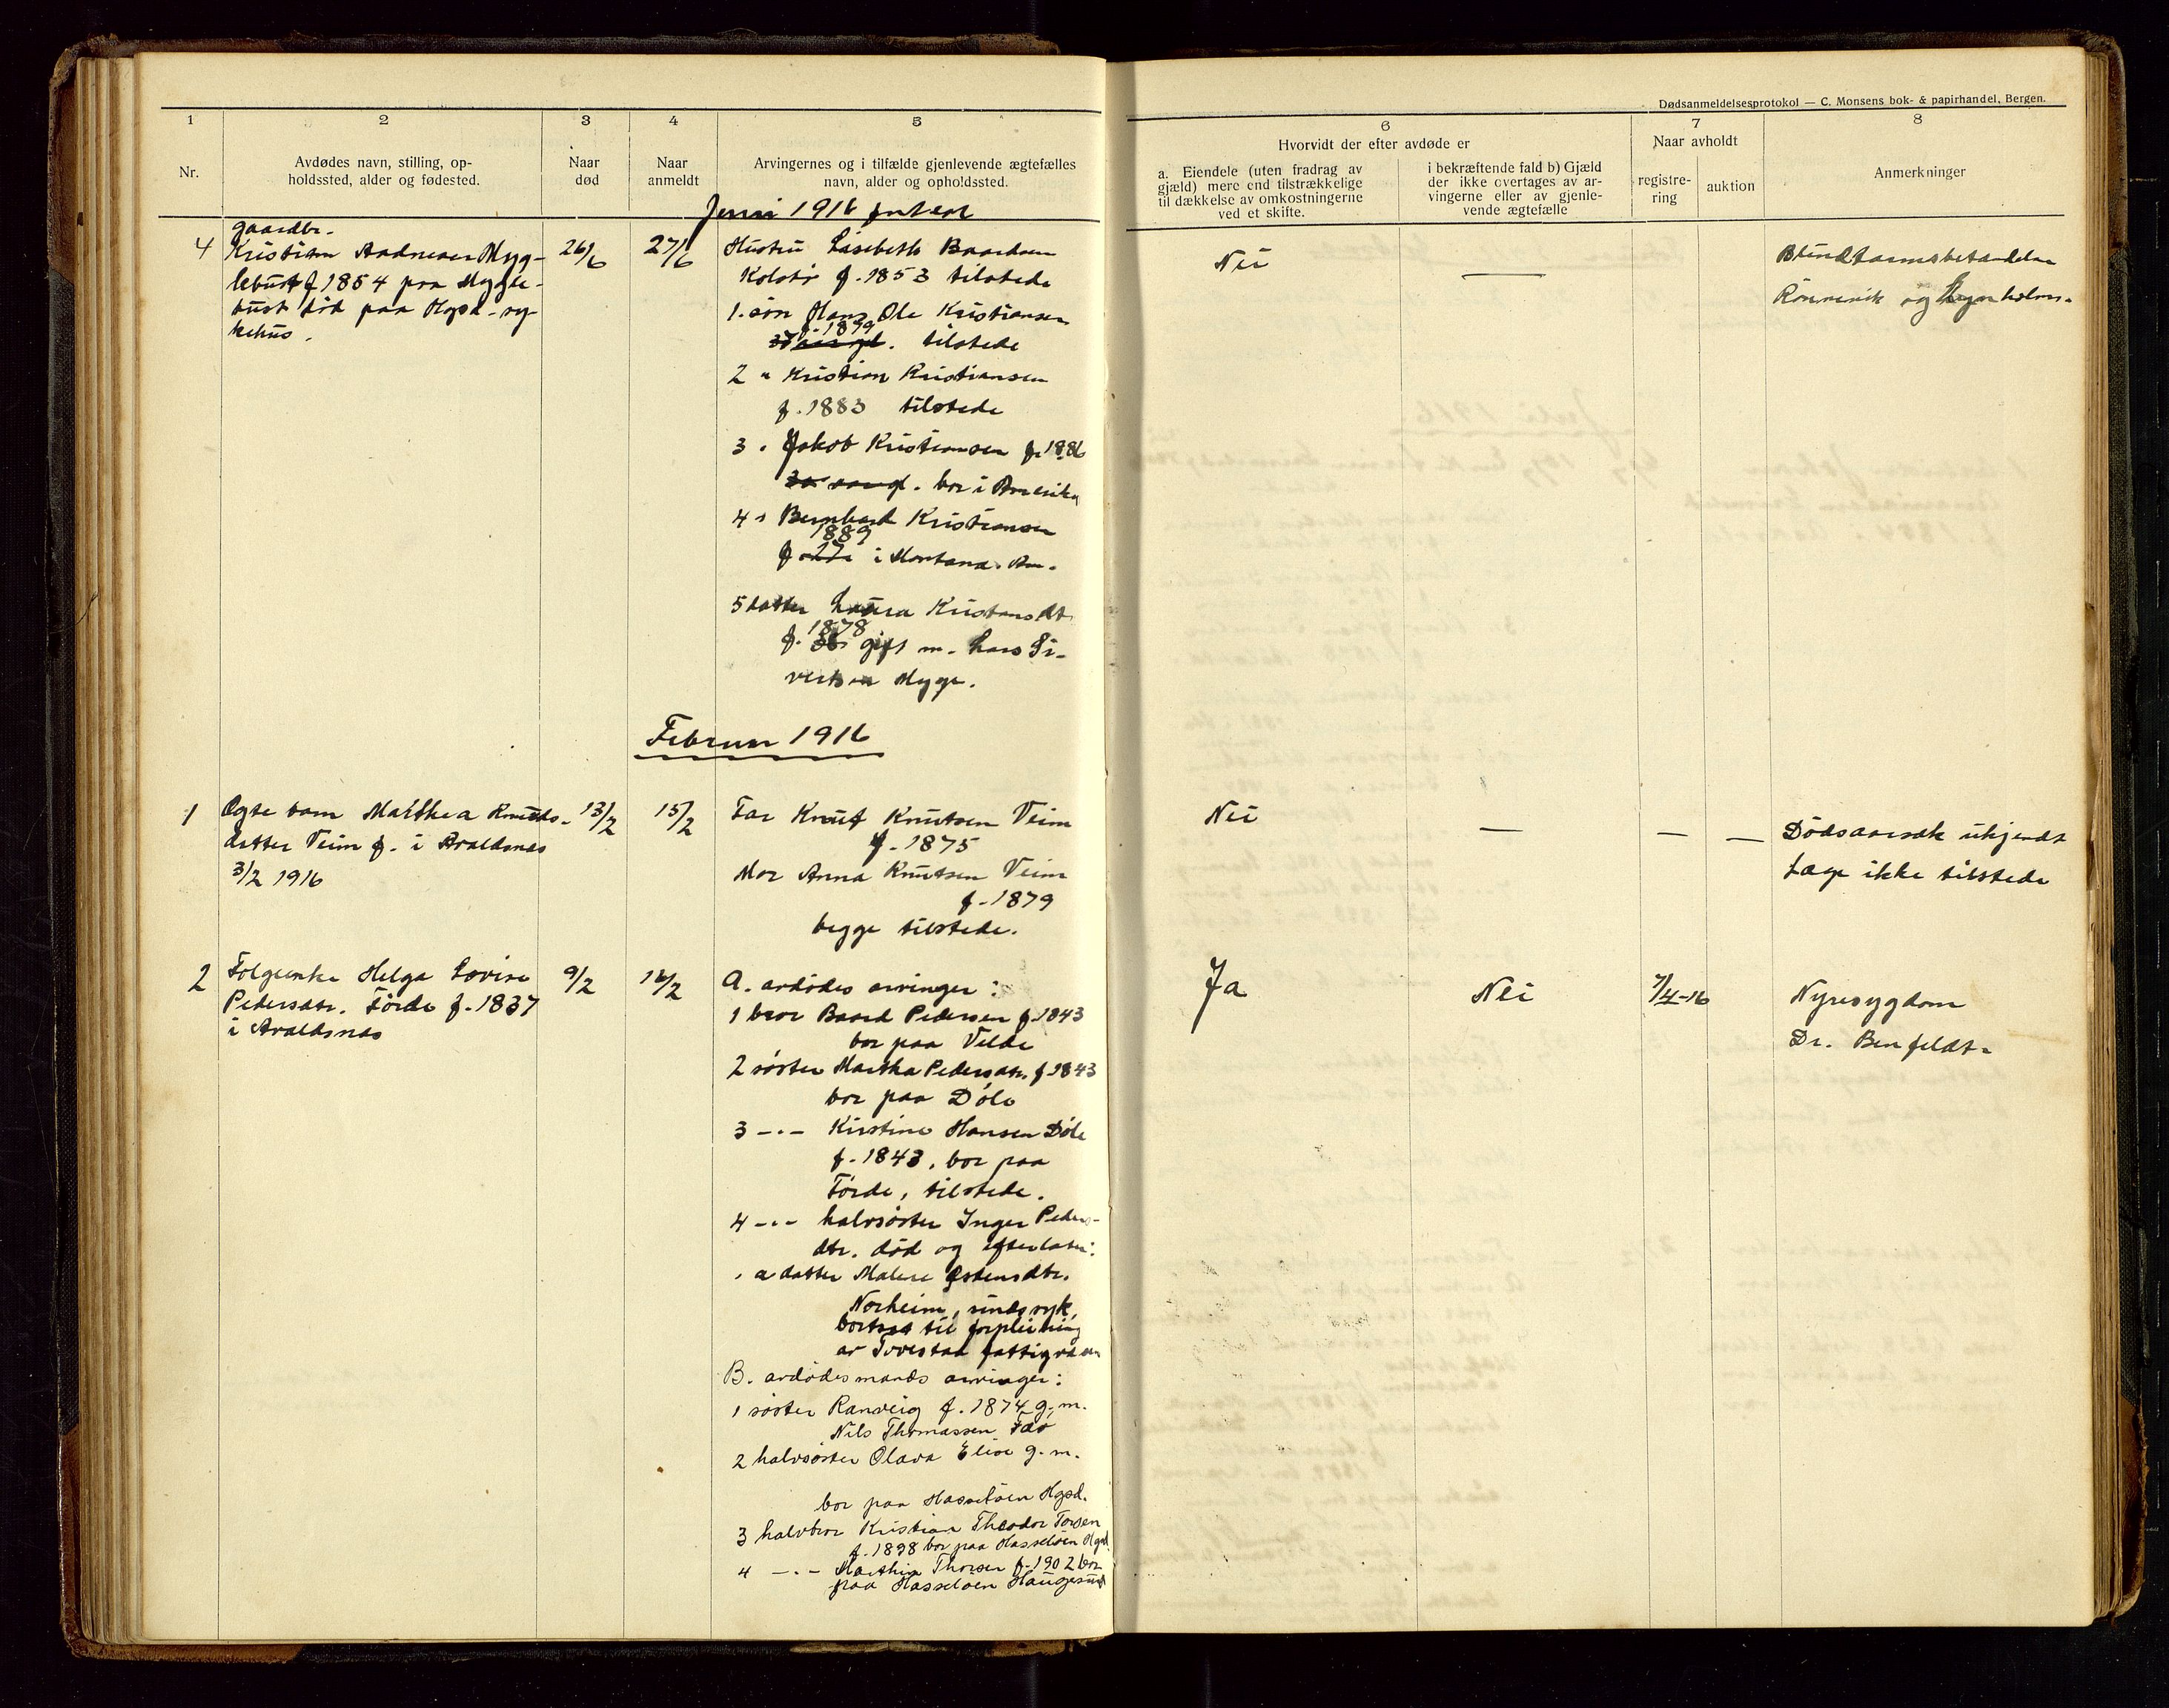 Dødsanmeldelsesprotokol — C. Monsens bok- & papirhandel, Bergen.
1
2
3
4
5
6
7
8
Nr.
Avdødes navn, stilling, op-
holdssted, alder og fødested.
Naar
død
Naar
anmeldt
Arvingernes og i tilfælde gjenlevende ægtefælles
navn, alder og opholdssted.
Hvorvidt der efter avdøde er
a. Eiendele (uten fradrag av
gjæld) mere end tilstrækkelige
til dækkelse av omkostningerne
ved et skifte.
i bekræftende fald b) Gjæld
der ikke overtages av ar-
vingerne eller av gjenle-
vende ægtefælle
Naar avholdt
registre-
ring
auktion
Anmerkninger
Juni 1916 fortsat
4
gaardbr.
Kristian Andreasen Myg-
lebust f 1854 paa Mygle-
bust død paa Hgsd-sy-
kehus.
26/6
27/6
Hustru Lisebeth Baardsen
Kolstø f. 1853 tilstede
1. søn Hans Ole Kristiansen
f. 1879
tilstede
2 " Kristian Kristiansen
f. 1883 tilstede
3 " Jakob Kristiansen f. 1886
bor i Amerika
4 " Bernhard Kristiansen
1889
f. i Montana. Am.
5 datter Laura Kristiansdt.
1878
f. gift m. Lars Si-
vertsen Myge.
Nei
—
Rönnevik og
Februar 1916
1
Egte barn Marthea Knuds-
datter Veim f. i Avaldsnes
3/2 1916
13/2
15/2
Far Knut Knutsen Veim
f. 1875
Mor Anna Knutsen Veim
f. 1879
begge tilstede.
Nei
—
—
—
Dödsaarsak ukjendt
Læge ikke tilstede
2
Folgeenke Helga Lovise
Pedersdtr. Förde f. 1837
i Avaldsnes
9/2
16/2
A. avdødes arvinger:
1 bror Baard Pedersen f. 1843
bor paa Velde
2 søster Martha Pedersdtr. f. 1843
bor paa Døle
3 -"- Kirstine Hansen Døle
f. 1843, bor paa
Förde, tilstede.
4 -"- halvsøster Inger Peders-
dtr. død og efterlater:
a datter Malene Østensdtr.
Norheim, sindssyk,
bortsat til forpleining
av Torvestad fattigvæsen
B. avdødes mands arvinger:
1 søster Ranveig f. 1874 g. m.
Nils Thomassen
2 halvsøster Olava Elise g. m.
bor paa Hasseløen Hgsd.
3 halvbror Kristian Theodor Torsen
f. 1898 bor paa Hasseløen Hgsd.
4 -"- Thorsen f. 1902 bor
paa Hasseløen Haugesund
Ja
Nei
7/4-16
Nyresygdom
Dr. Benfeldt.